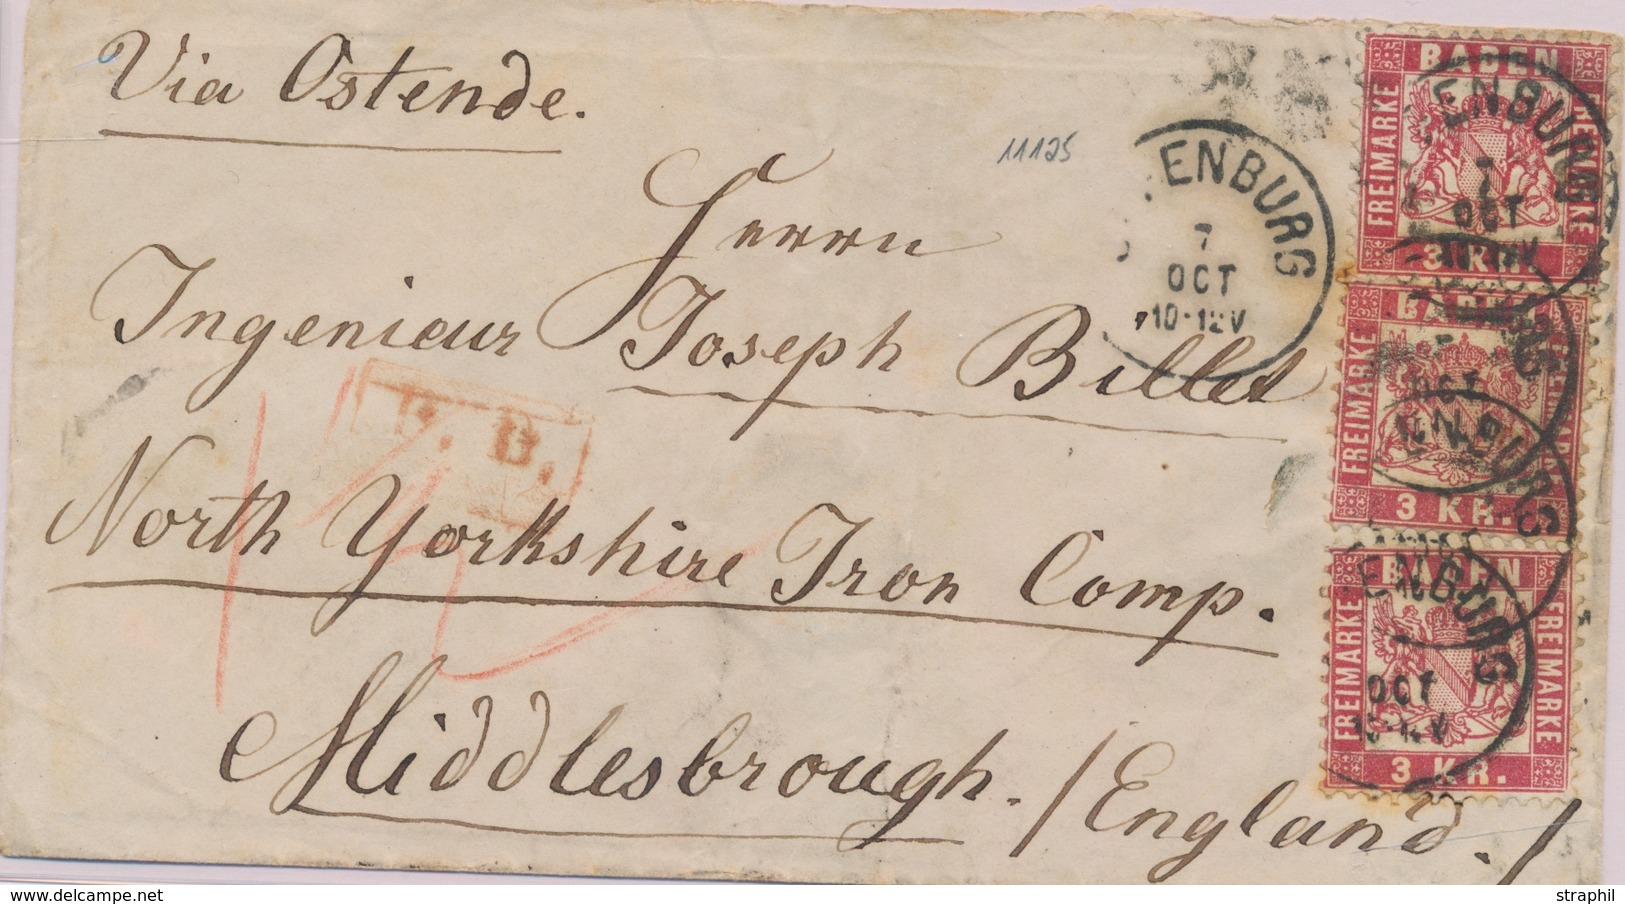 Via Ostende.
11125
Herrn
Ingenieur Joseph Billet
North Yorkshire Iron Comp.
Middlesbrough. / England. /
P. D.
ENBURG
7
OCT
10-12V
BADEN
FREIMARKE
3 KR.
ENBURG
7
OCT
BADEN
FREIMARKE
3 KR.
ENBURG
OCT
BADEN
FREIMARKE
FREIMARKE
3 KR.
ENBURG
OCT
straphil